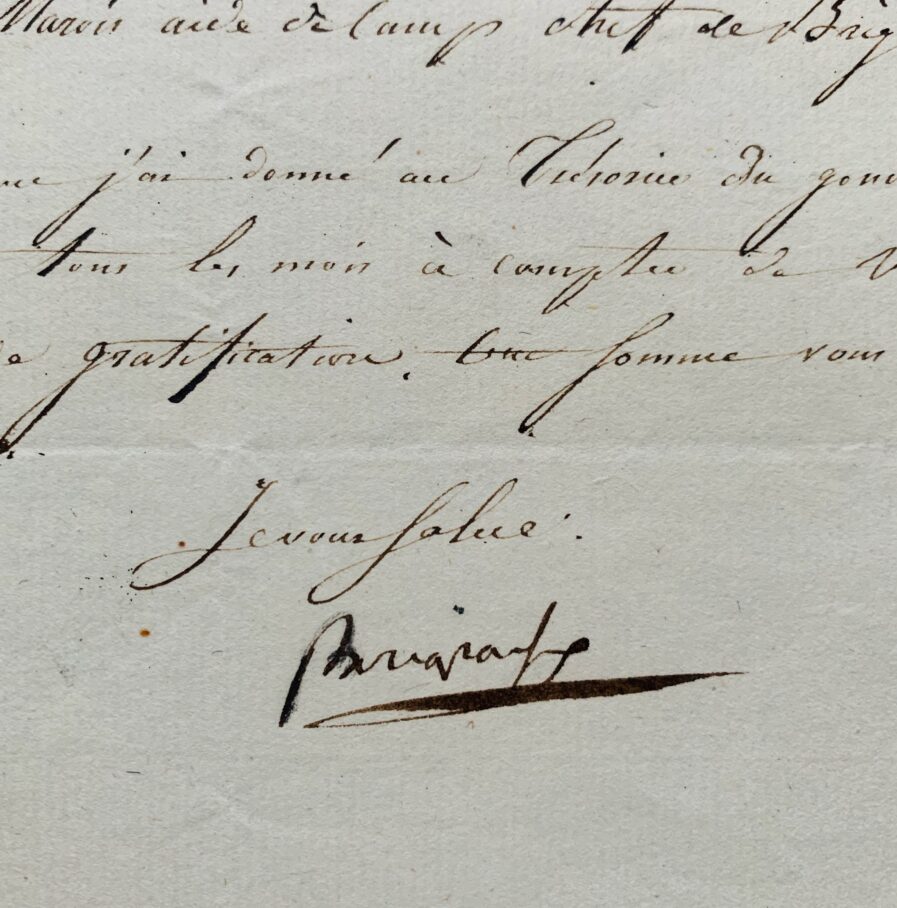 Marois aide de Camp chef de Brig
j'ai donné au Trésorier du gouv
tous les mois à compter de V
gratification. Cette somme vous
Je vous salue.
Bonaparte